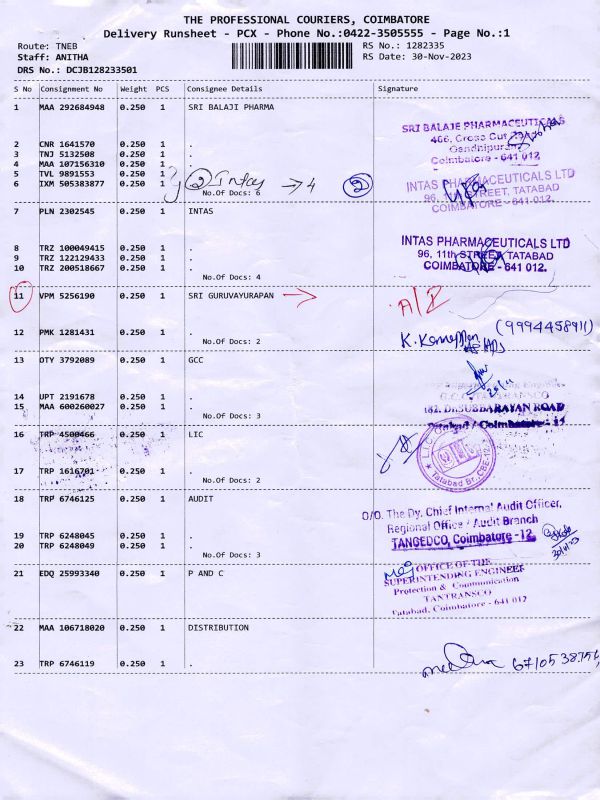 THE PROFESSIONAL COURIERS, COIMBATORE
Delivery Runsheet - PCX - Phone No.:0422-3505555 - Page No.:1
Route: TNEB RS No.: 1282335
Staff: ANITHA RS Date: 30-Nov-2023
DRS No.: DCJB128233501
S No Consignment No Weight PCS Consignee Details Signature
1 MAA 292684948 0.250 1 SRI BALAJI PHARMA
SRI BALAJE PHARMACEUTICALS
466, Cross Cut
Gandhipuram
Coimbatore - 641 012
2 CNR 1641570 0.250 1 .
3 TNJ 5132508 0.250 1 .
4 MAA 107156310 0.250 1 .
5 TVL 9891553 0.250 1 .
6 IXM 505383877 0.250 1 .
2 Intas → 4 2
No.Of Docs: 6
INTAS PHARMACEUTICALS LTD
96, 11th STREET, TATABAD
COIMBATORE - 641 012.
7 PLN 2302545 0.250 1 INTAS
INTAS PHARMACEUTICALS LTD
96, 11th STREET, TATABAD
COIMBATORE - 641 012.
8 TRZ 100049415 0.250 1 .
9 TRZ 122129433 0.250 1 .
10 TRZ 200518667 0.250 1 .
No.Of Docs: 4
11 VPM 5256190 0.250 1 SRI GURUVAYURAPAN →
(9994458911)
12 PMK 1281431 0.250 1 .
No.Of Docs: 2
13 OTY 3792089 0.250 1 GCC
14 UPT 2191678 0.250 1 .
15 MAA 600260027 0.250 1 .
No.Of Docs: 3
G.C.C. TANTRANSCO
182, Dr.SUBBARAYAN ROAD
Tatabad / Coimbatore - 12
16 TRP 4500466 0.250 1 LIC
L I C
Tatabad Br., CBE-12
17 TRP 1616701 0.250 1 .
No.Of Docs: 2
18 TRP 6746125 0.250 1 AUDIT
O/O. The Dy. Chief Internal Audit Officer,
Regional Office / Audit Branch
TANGEDCO, Coimbatore - 12
19 TRP 6248045 0.250 1 .
20 TRP 6248049 0.250 1 .
No.Of Docs: 3
21 EDQ 25993340 0.250 1 P AND C
OFFICE OF THE
SUPERINTENDING ENGINEER
Protection & Communication
TANTRANSCO
Tatabad, Coimbatore - 641 012
22 MAA 106718020 0.250 1 DISTRIBUTION
23 TRP 6746119 0.250 1 .